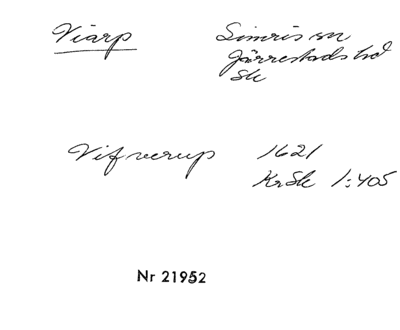 Viarp Simris sn
Järrestads hd
Sk
Vifverup 1621
KrSk 1:405
Nr 21952